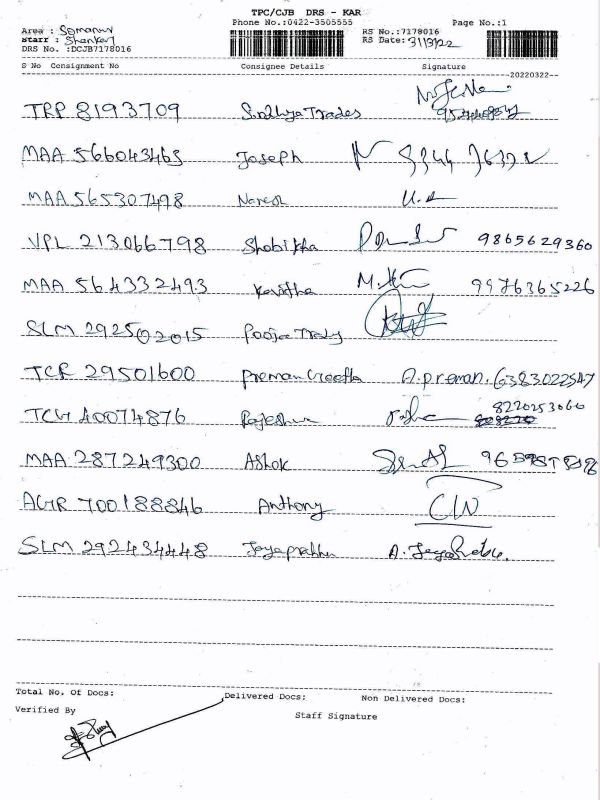 TPC/CJB DRS - KAR
Phone No.:0422-3505555
Page No.:1
Area : Somanur
Staff : Shankar
DRS No. :DCJB7178016
RS No.:7178016
RS Date: 31/3/22
S No Consignment No Consignee Details Signature
--20220322--
TRP 8193709 Sindhya Trades
MAA 566043465 Joseph
MAA 565307498 Naresh
VPL 213066798 Shobikha 9865629360
MAA 564332493 Kavitha 9976365226
SLM 292502015 Pooja
TCR 29501600 Preman Geetha A.preman. 6383022547
TCG 40074876 Rajeshwr 8220253060
MAA 287249300 Ashok
AGR 700188846 Anthony
SLM 292434448 Jayaprabhu
Total No. Of Docs: Delivered Docs: Non Delivered Docs:
Verified By
Staff Signature